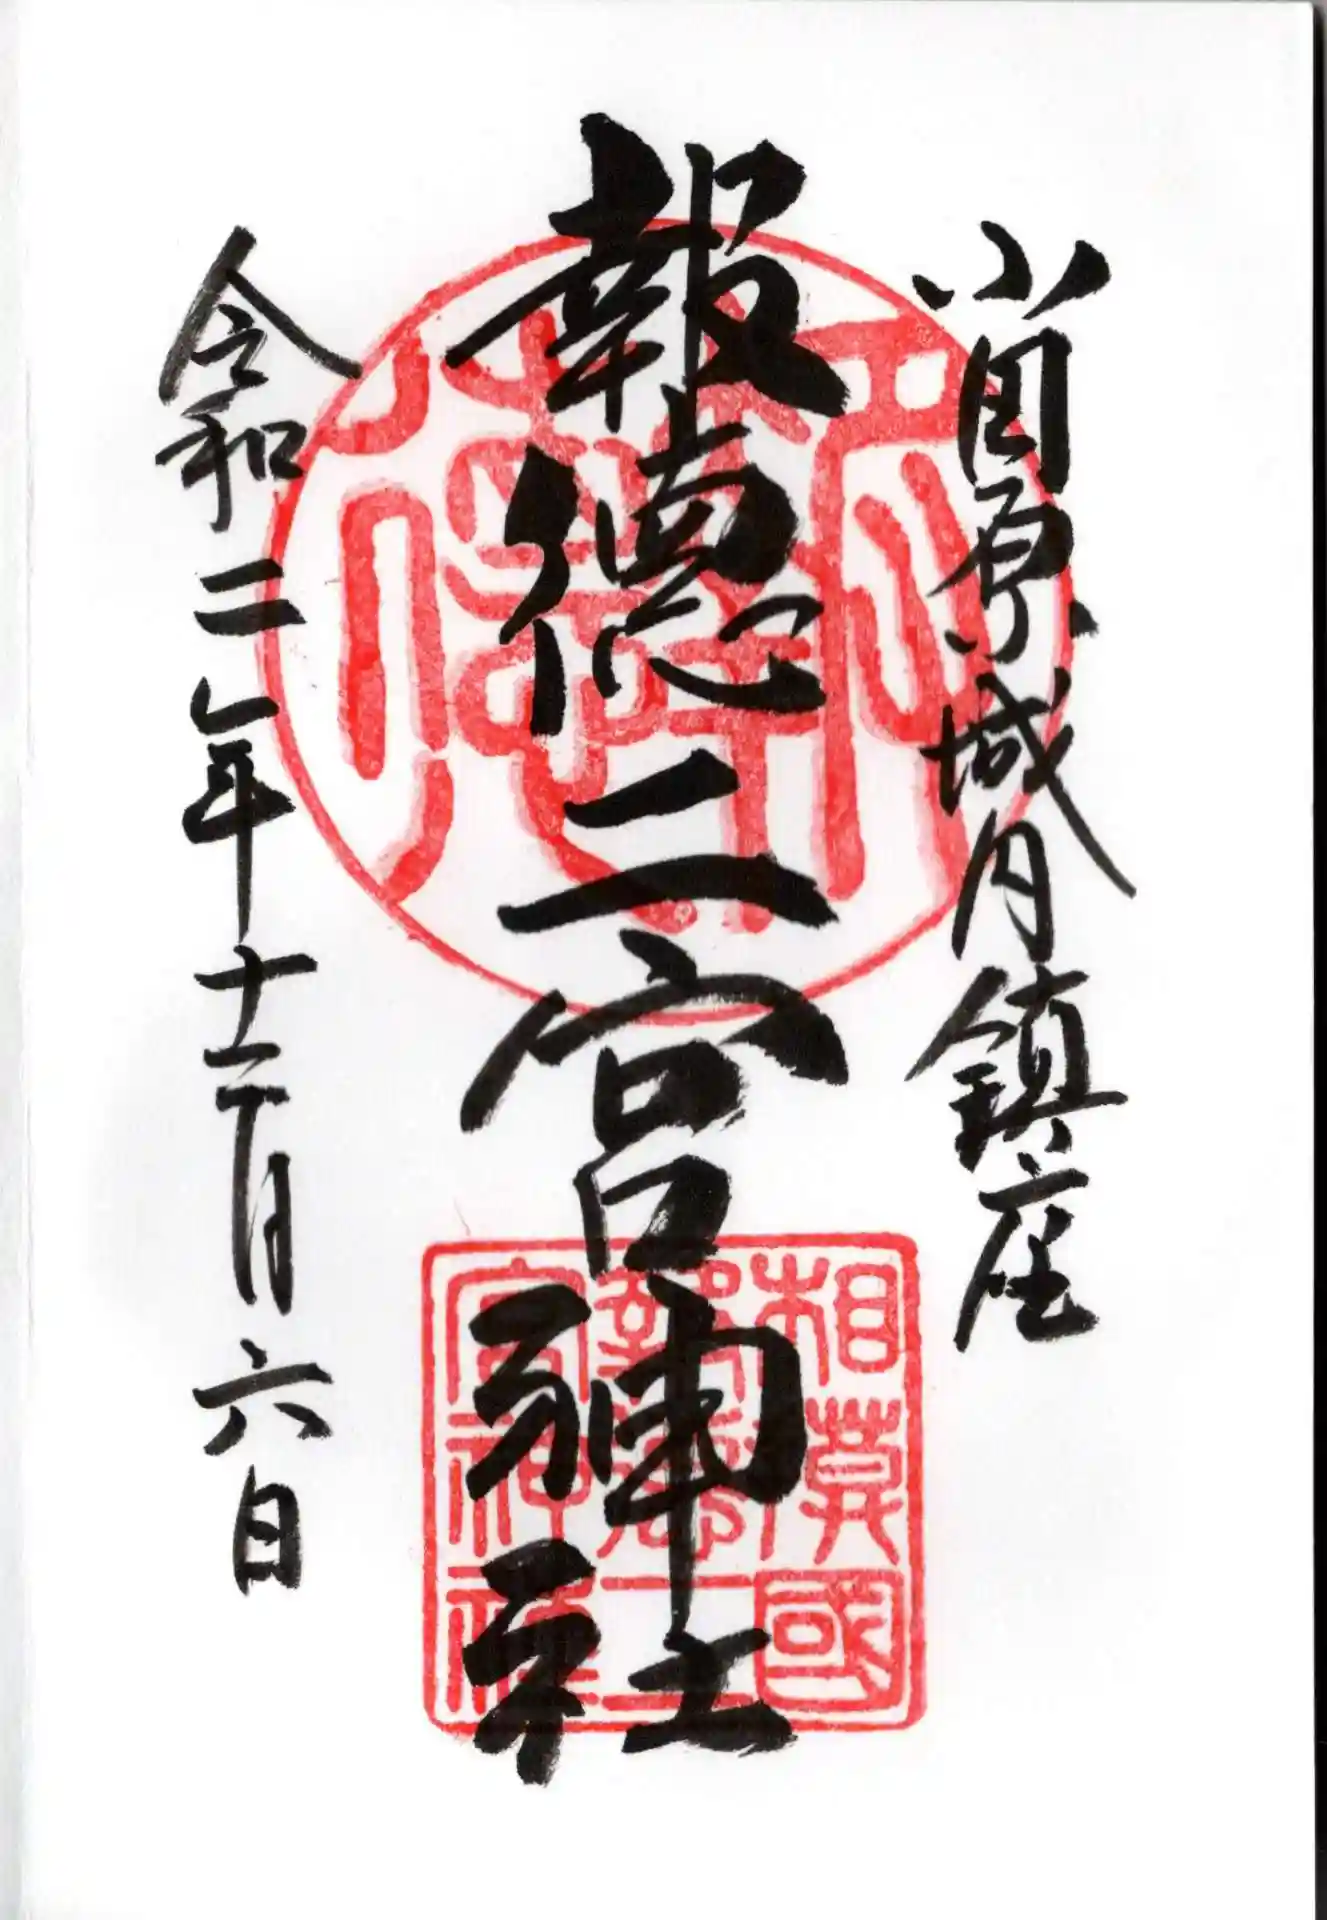 小田原城内鎮座
報徳二宮神社
令和二年十二月六日
相莫國
報徳二
宮神社